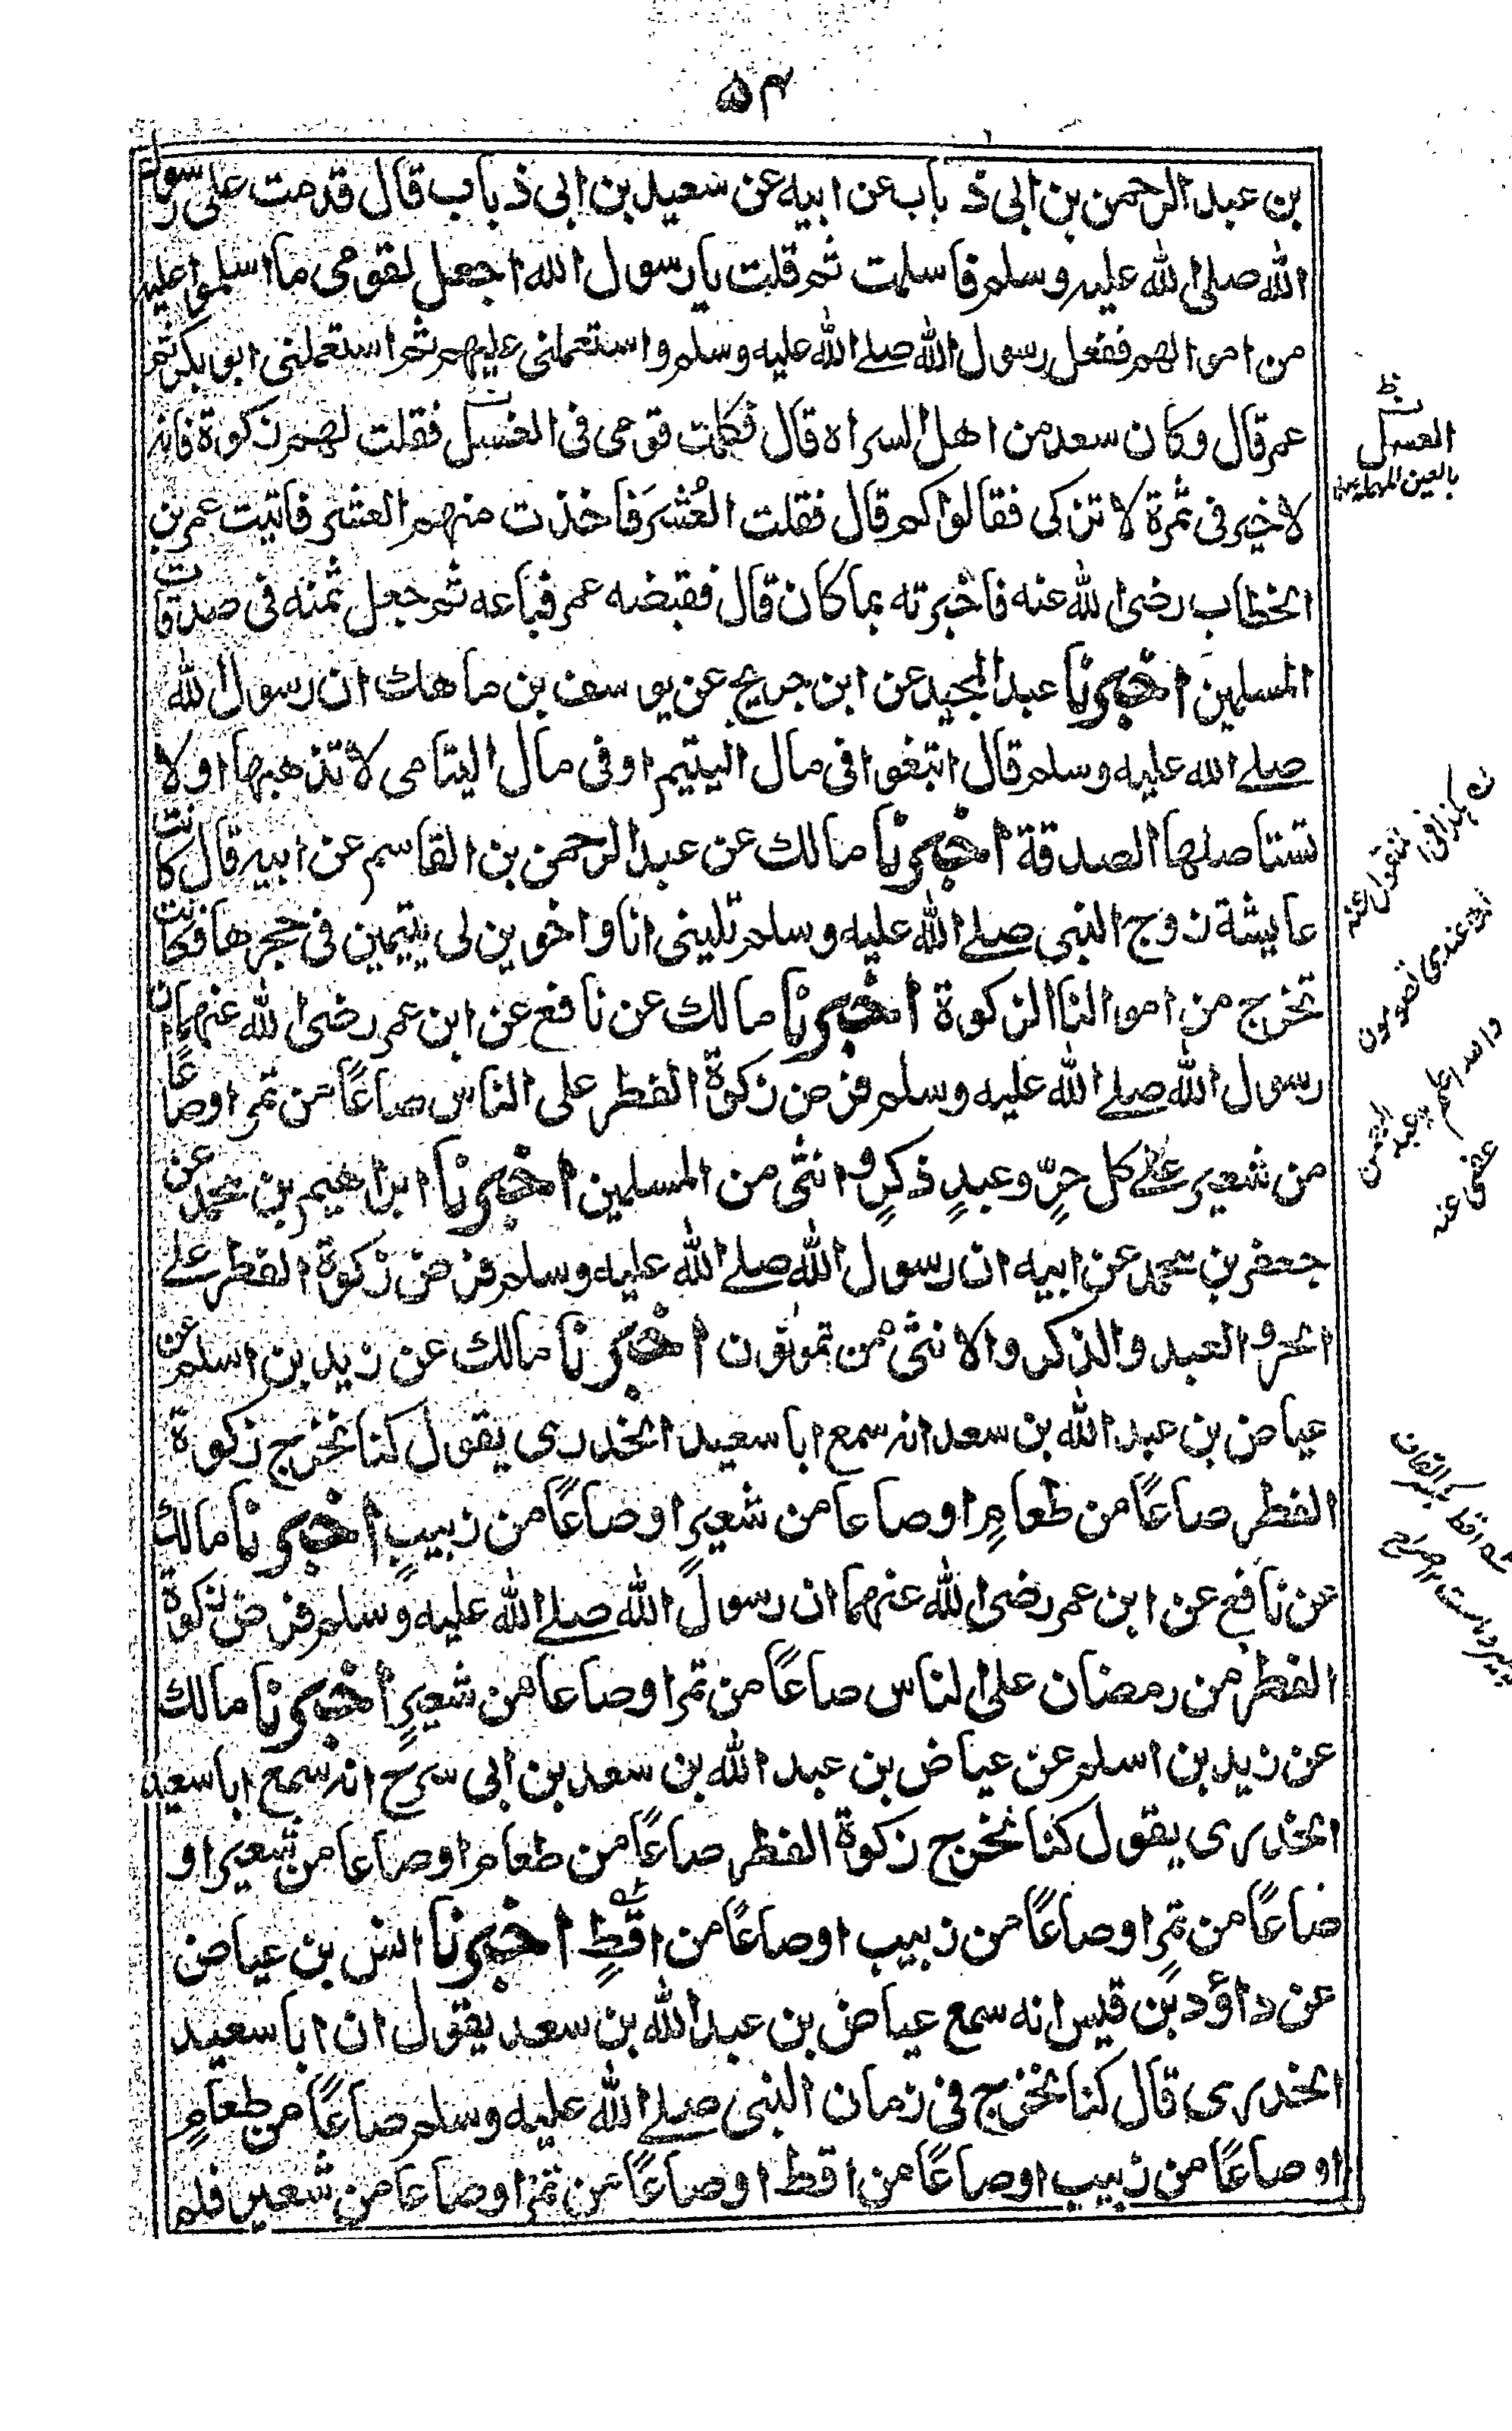 ۵۴
بن عبد الرحمن بن ابى ذباب عن ابيه عن سعيد بن ابى ذباب قال قدمت على رسول
الله صلى الله عليه وسلم فاسلمت ثم قلت يا رسول الله اجعل لقومى ما اسلموا عليه
من اموالهم ففعل رسول الله صلے الله عليه وسلم واستعملنى عليهم ثم استعملنى ابو بكر ثم
عمر قال وكان سعد من اهل السراه قال فكلمت قومى فى الغسل فقلت لهم زكوة فانه
لا خير فى ثمرة لا تزكى فقالوا كم قال فقلت العُشرَ فاخذت منهم العشر فاتيت عمر بن
الخطاب رضى الله عنه فاخبرته بما كان قال فقبضه عمر فباعه ثم جعل ثمنه فى صدقات
المسلمين اخبرنا عبد المجيد عن ابن جريج عن يوسف بن ماهك ان رسول الله
صلے الله عليه وسلم قال ابتغوا فى مال اليتيم او فى مال اليتامى لا تذهبها او لا
تستاصلها الصدقة اخبرنا مالك عن عبد الرحمن بن القاسم عن ابيه قال كانت
عايشة زوج النبى صلے الله عليه وسلم تلينى انا واخوين لى يتيمين فى حجرها فكانت
تخرج من اموالنا الزكوة اخبرنا مالك عن نافع عن ابن عمر رضى الله عنهما ان
رسول الله صلے الله عليه وسلم فرض زكوة الفطر على الناس صاعًا من تمر او صاعًا
من شعير علے كل حرٍّ وعبدٍ ذكرٍ و انثى من المسلمين اخبرنا ابراهيم بن محمد عن
جعفر بن محمد عن ابيه ان رسول الله صلے الله عليه وسلم فرض زكوة الفطر علے
الحر و العبد والذكر والانثى من تمونون اخبرنا مالك عن زيد بن اسلم عن
عياض بن عبد الله بن سعد انه سمع ابا سعيد الخدرى يقول كنا نخرج زكوة
الفطر صاعًا من طعامٍ او صاعا من شعيرٍ او صاعًا من زبيبٍ اخبرنا مالك
عن نافع عن ابن عمر رضى الله عنهما ان رسول الله صلے الله عليه وسلم فرض زكوة
الفطر من رمضان على الناس صاعًا من تمر او صاعا من شعيرٍ اخبرنا مالك
عن زيد بن اسلم عن عياض بن عبد الله بن سعد بن ابى سرح انه سمع ابا سعيد
الخدرى يقول كنا نخرج زكوة الفطر صاعًا من طعام او صاعا من شعير او
صاعًا من تمرٍ او صاعًا من زبيب او صاعًا من اقطٍ اخبرنا انس بن عياض
عن داؤد بن قيس انه سمع عياض بن عبد الله بن سعد يقول ان ابا سعيد
الخدرى قال كنا نخرج فى زمان النبى صلے الله عليه وسلم صاعًا من طعامٍ
او صاعًا من زبيب او صاعًا من اقط او صاعًا من تمر او صاعا من شعير فلم
العسل
بالعين المهملة
والله اعلم
عفى عنه